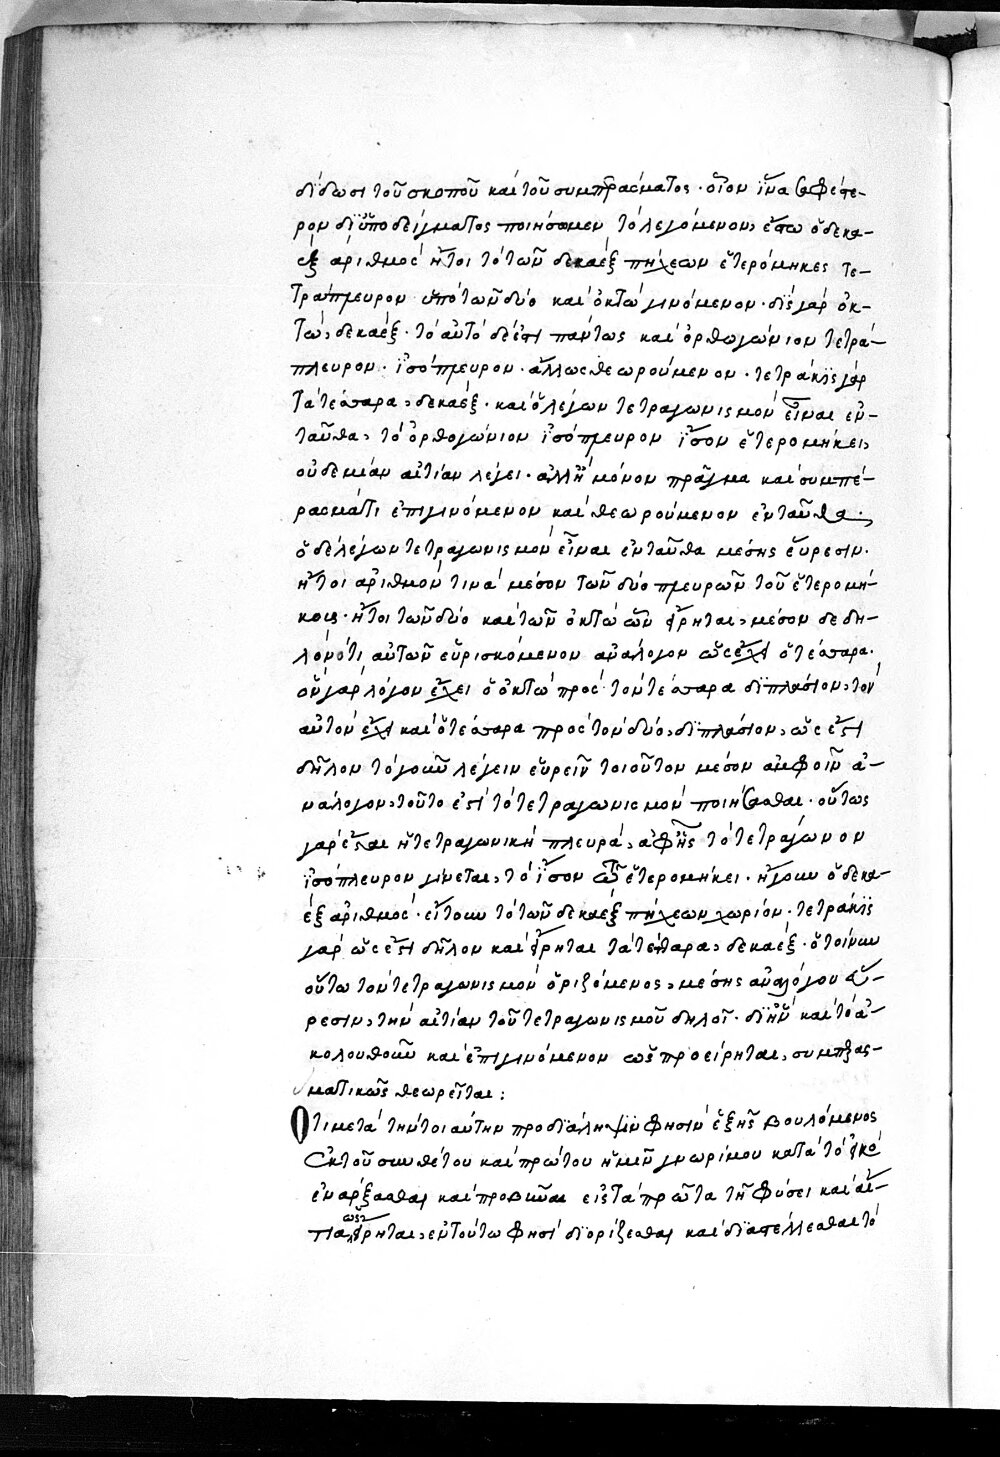 δίδωσι τοῦ σκοποῦ καὶ τοῦ συμπεράσματος · οἷον ἵνα σαφέστε-
ρον δι' ὑποδείγματος ποιήσωμεν τὸ λεγόμενον, ἔστω ὁ δεκα-
έξ ἀριθμὸς ἤτοι τὸ τῶν δεκαὲξ πήχεων ἑτερόμηκες τε-
τράπλευρον ὑπὸ τῶν δύο καὶ ὀκτὼ γινόμενον · δὶς γὰρ ὀκ-
τὼ, δεκαέξ · τὸ αὐτὸ δέ ἐστι πάντως καὶ ὀρθογώνιον τετρά-
πλευρον · ἰσόπλευρον · ἄλλως θεωρούμενον · τετράκις γὰρ
τὰ τέσσαρα, δεκαέξ · καὶ ὁ λέγων τετραγωνισμὸν εἶναι ἐν-
ταῦθα, τὸ ὀρθογώνιον ἰσόπλευρον ἴσον ἑτερομήκει,
οὐδεμίαν αἰτίαν λέγει · ἀλλ' ἢ μόνον πρᾶγμα καὶ συμπέ-
ρασμά τι ἐπιγινόμενον καὶ θεωρούμενον ἐνταῦθα ·
ὁ δὲ λέγων τετραγωνισμὸν εἶναι ἐνταῦθα μέσης εὕρεσιν ·
ἤτοι ἀριθμόν τινα μέσον τῶν δύο πλευρῶν τοῦ ἑτερομή-
κους · ἤτοι τῶν δύο καὶ τῶν ὀκτὼ ὧν εἴρηται, μέσον δὲ δη-
λονότι αὐτῶν εὑρισκόμενον ἀνάλογον ὡς ἔχει ὁ τέσσαρα ·
ὃν γὰρ λόγον ἔχει ὁ ὀκτὼ πρὸς τὸν τέσσαρα διπλάσιον, τὸν
αὐτὸν ἔχει καὶ ὁ τέσσαρα πρὸς τὸν δύο, διπλάσιον, ὡς ἔστι
δῆλον τὸ γοῦν λέγειν εὑρεῖν τοιοῦτον μέσον ἀμφοῖν ἀ-
νάλογον, τοῦτο ἐστὶ τὸ τετραγωνισμὸν ποιήσασθαι · οὕτως
γὰρ ἔσται ἡ τετραγωνικὴ πλευρὰ, ἀφ' ἧς τὸ τετράγωνον
ἰσόπλευρον γίνεται, τὸ ἴσον τῶ ἑτερομήκει · ἤγουν ὁ δεκα-
έξ ἀριθμὸς · εἴτουν τὸ τῶν δεκαὲξ πήχεων χωρίον · τετράκις
γὰρ ὡς ἔστι δῆλον καὶ εἴρηται τὰ τέσσαρα, δεκαέξ · ὁ τοίνυν
οὕτω τὸν τετραγωνισμὸν ὁριζόμενος, μέσης ἀναλόγου εὕ-
ρεσιν, τὴν αἰτίαν τοῦ τετραγωνισμοῦ δηλοῖ · δι' ἣν καὶ τὸ ἀ-
κολουθοῦν καὶ ἐπιγινόμενον ὡς προείρηται, συμπερας-
ματικῶς θεωρεῖται :
Ὅτι μετὰ τὴν τοιαύτην προδιάληψίν φησιν ἑξῆς βουλόμενος
ἐκ τοῦ συνθέτου καὶ πρώτου ἡμῖν γνωρίμου κατὰ τὸ εἰκὸς
ἐνάρξασθαι καὶ προβῆναι εἰς τὰ πρῶτα τῆ φύσει καὶ αἴ-
τια ὡς εἴρηται, ἐν τούτω φησὶ διορίζεσθαι καὶ διαστέλλεσθαι τὸ